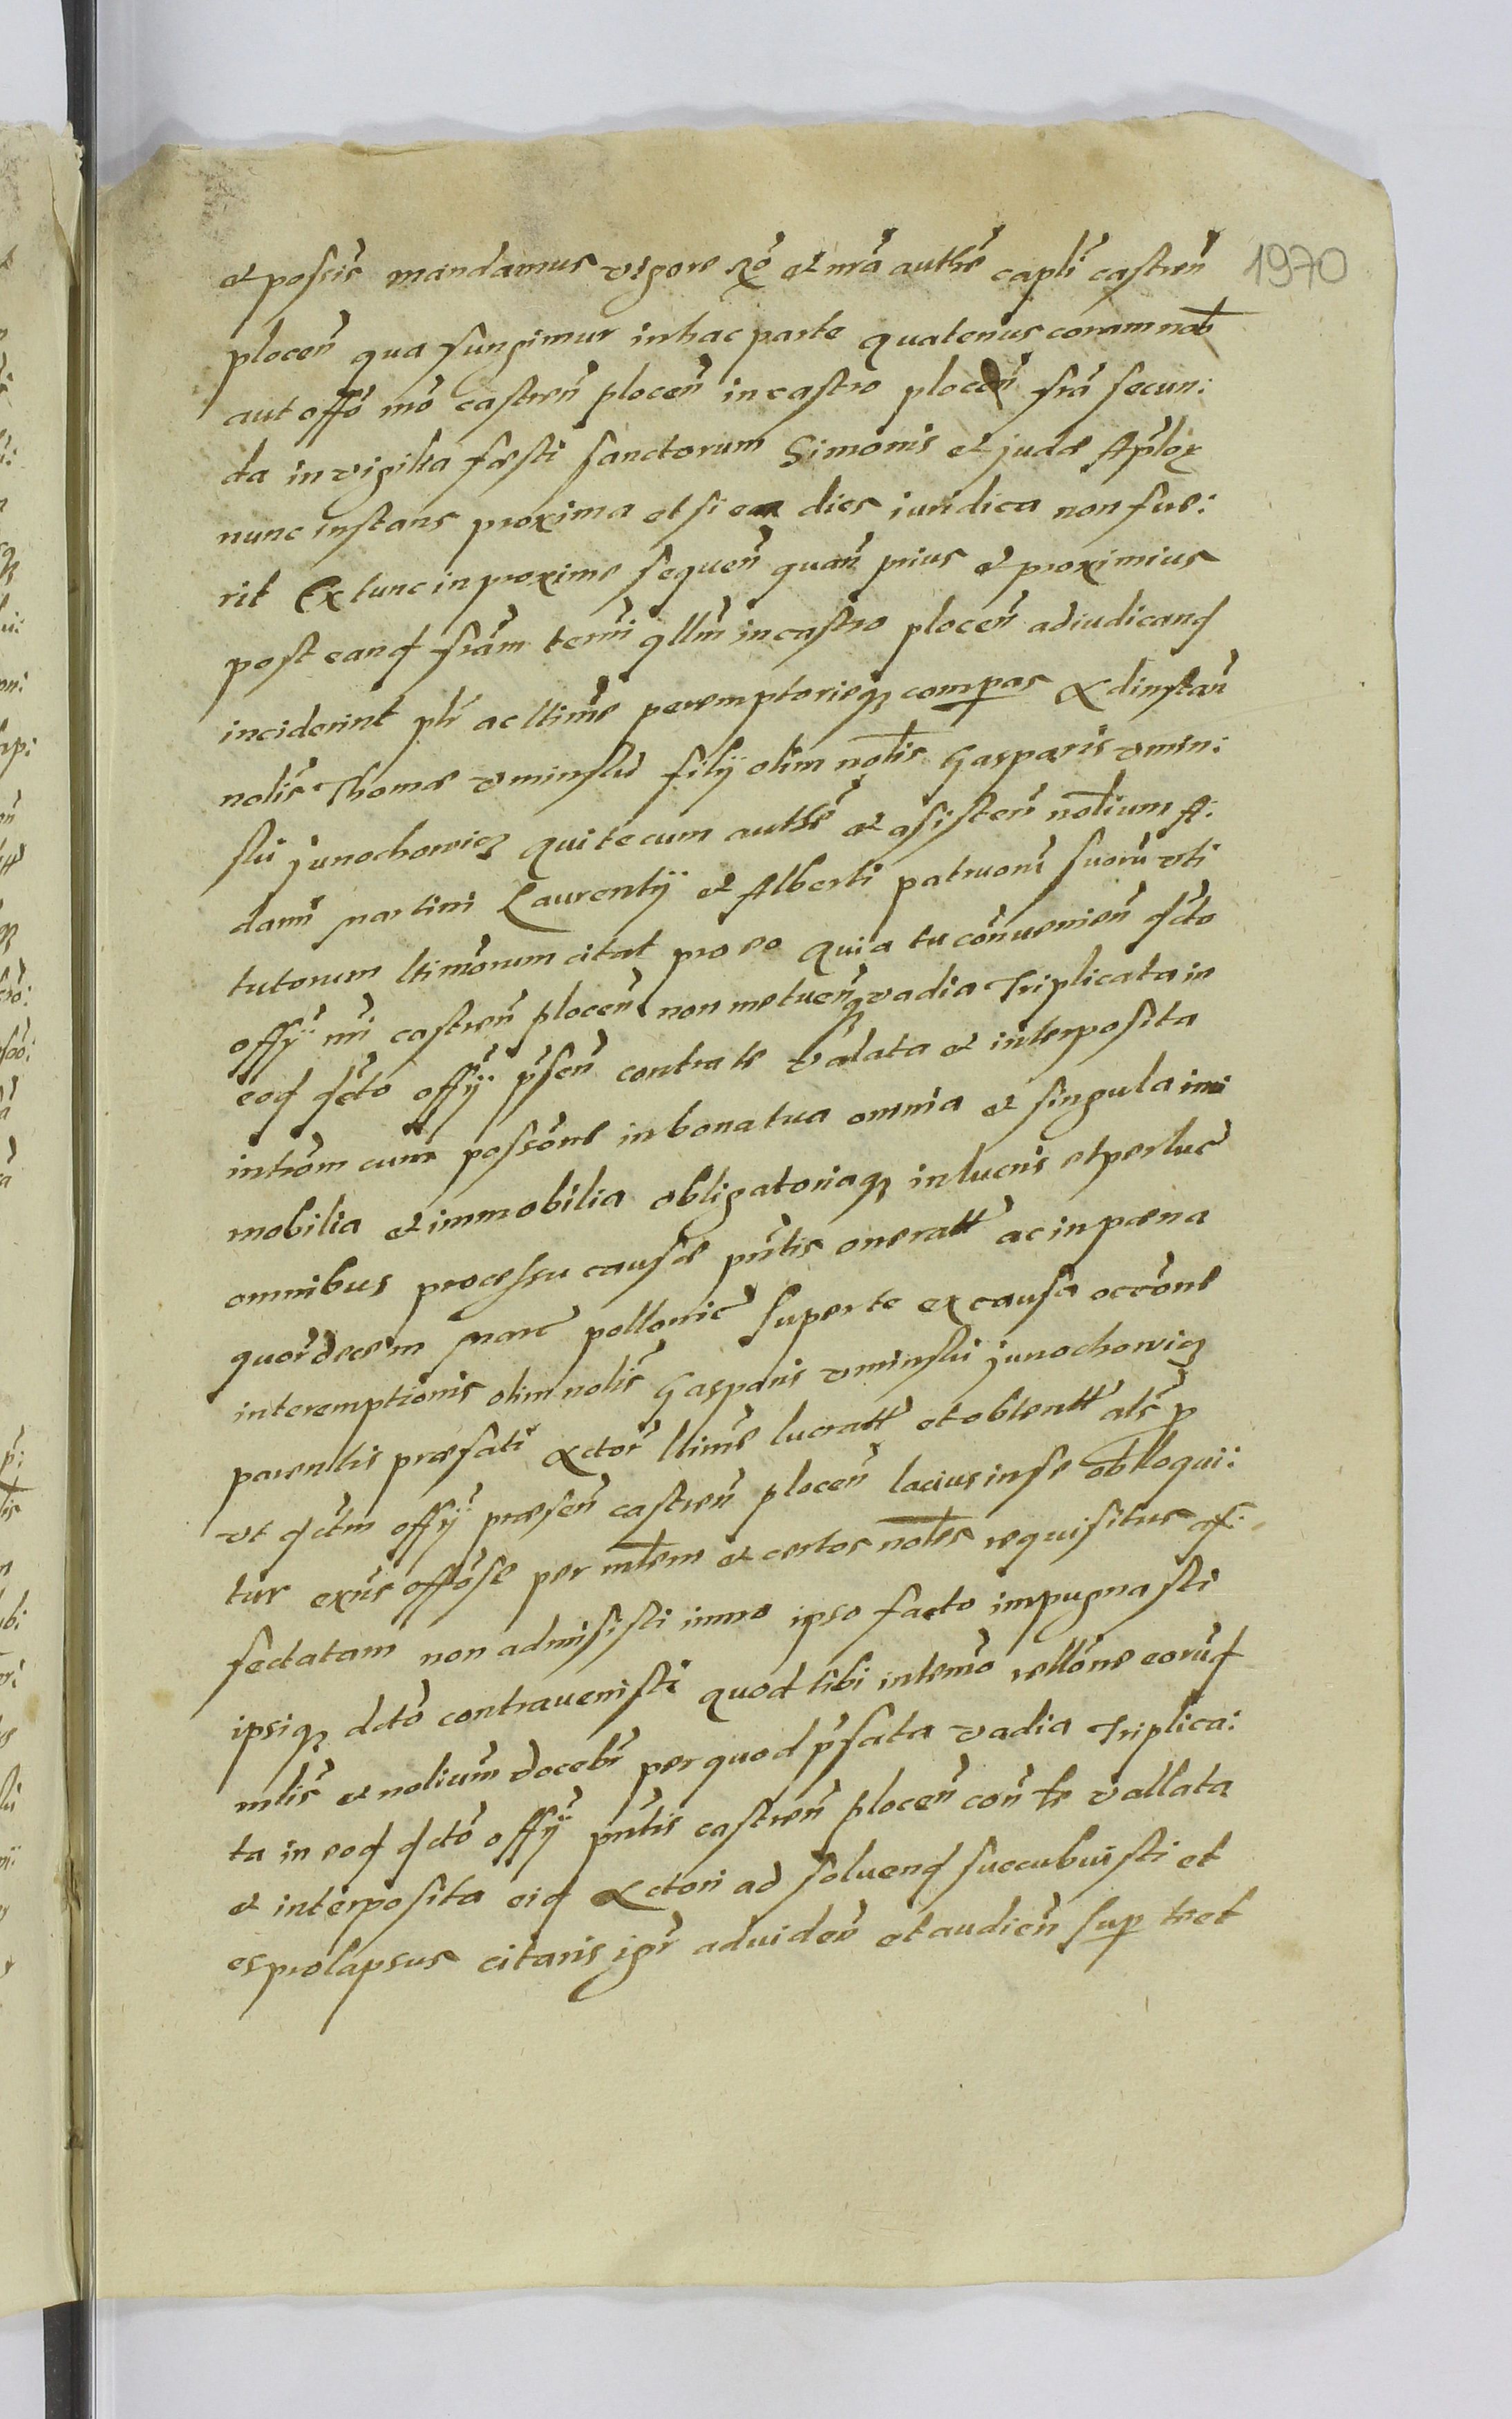 et possis mandamus vigore Ro et nra authe capli castren 1970
plocen qua fungimur in hac parte quatenus coram nob
aut offo nro castren plocen in castro plocen fra secun:
da in vigilia festi sanctorum Simonis et judæ Aplor
nunc instans proxima et si ea dies iuridica non fue:
rit Ex tunc in proxime sequen quan prius et proximius
post eand fram termi qllm in castro plocen adiudicand
inciderint plr ac ltime peremptorieq compas Ad instan
nolis Thomæ vminski filij olim nolis Gasparis vmin:
ski junochowicz qui te cum authe et assisten nolium A:
dami martini Laurentij et Alberti patruom suoru vti
tutorum ltimorum citat pro eo quia tu conuenien dcto
offij nri castren plocen non metuen vadia Triplicata in
eod dcto offij psen contra te valata et interposita
introm cum possone in bona tua omnia et singula
mobilia et immobilia obligatoriaq in lucris et perluc
omnibus processu causæ pntis oneratt ac in pæna
quordecem marc pollonic super te ex causa occone
interemptionis olim nolis Gasparis vminski junochowicz
parentis præfati Actor ltime lucratt et obtentt als p
vt dctm offij præsen castren plocen lacius in se obloqui:
tur exns offose per mlem et certos noles requisitus af:
fectatam non admisisti immo ipso facto impugnasti
ipsiq dcto contrauenisti quod tibi in termo rellone eorud
mlis et nolium docebr per quod pfata vadia Triplica:
ta in eod dcto offij pntis castren plocen con te vallata
et interposita eid Actori ad soluend succubuisti et
es prolapsus citaris igr ad viden et audien sup te et